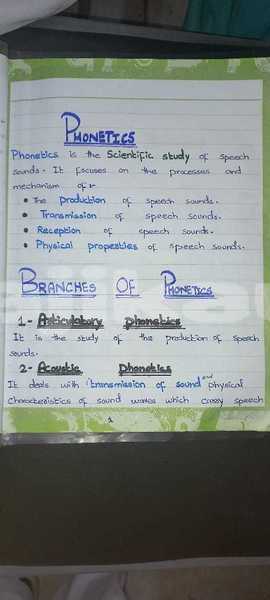 PHONETICS
Phonetics is the Scientific study of speech
sounds. It focuses on the processes and
mechanism of:-
• The production of speech sounds.
• Transmission of speech sounds.
• Reception of speech sounds.
• Physical properties of speech sounds.
BRANCHES OF PHONETICS
1- Articulatory phonetics
It is the study of the production of speech
sounds.
2- Acoustic Phonetics
It deals with transmission of sound and physical
characteristics of sound waves which carry speech
1